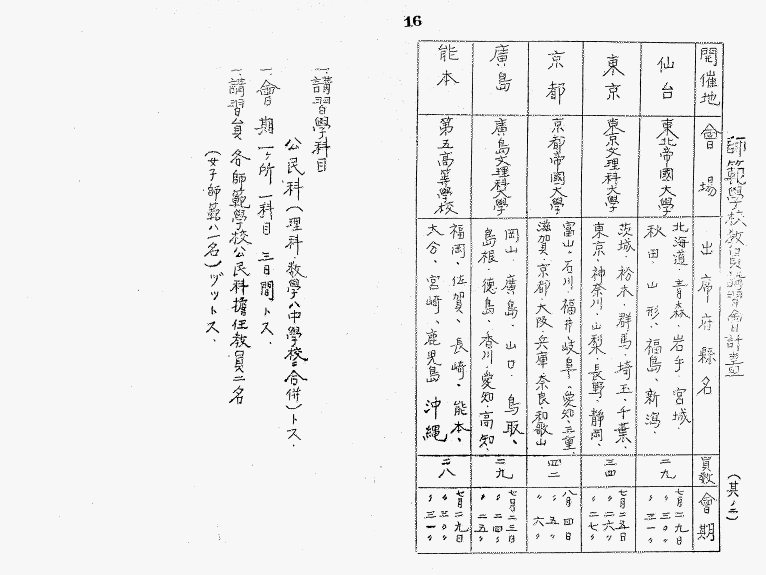 16
師範學校教員講習會計畫
(其ノ二)
開催地
會場
出席府縣名
員數
會期
仙台
東北帝國大學
北海道、青森、岩手、宮城、
秋田、山形、福島、新潟、
二九
七月二九日
〃三〇〃
〃三一〃
東京
東京文理科大學
茨城、栃木、群馬、埼玉、千葉、
東京、神奈川、山梨、長野、静岡、
三四
七月二五日
〃二六〃
〃二七〃
京都
京都帝國大學
富山、石川、福井、岐阜、愛知、三重、
滋賀、京都、大阪、兵庫、奈良、和歌山
四二
八月四日
〃五〃
〃六〃
廣島
廣島文理科大學
岡山、廣島、山口、鳥取、
島根、德島、香川、愛知、高知、
二九
七月二三日
〃二四〃
〃二五〃
熊本
第五高等學校
福岡、佐賀、長崎、熊本、
大分、宮崎、鹿児島 沖縄
二八
七月二九日
〃三〇〃
〃三一〃
一、講習學科目
公民科(理科數學ハ中學校ニ合併)トス.
一、會期 一ヶ所 一科目 三日間トス.
一、講習員 各師範學校公民科擔任教員二名
(女子師範ハ一名)ヅツトス.